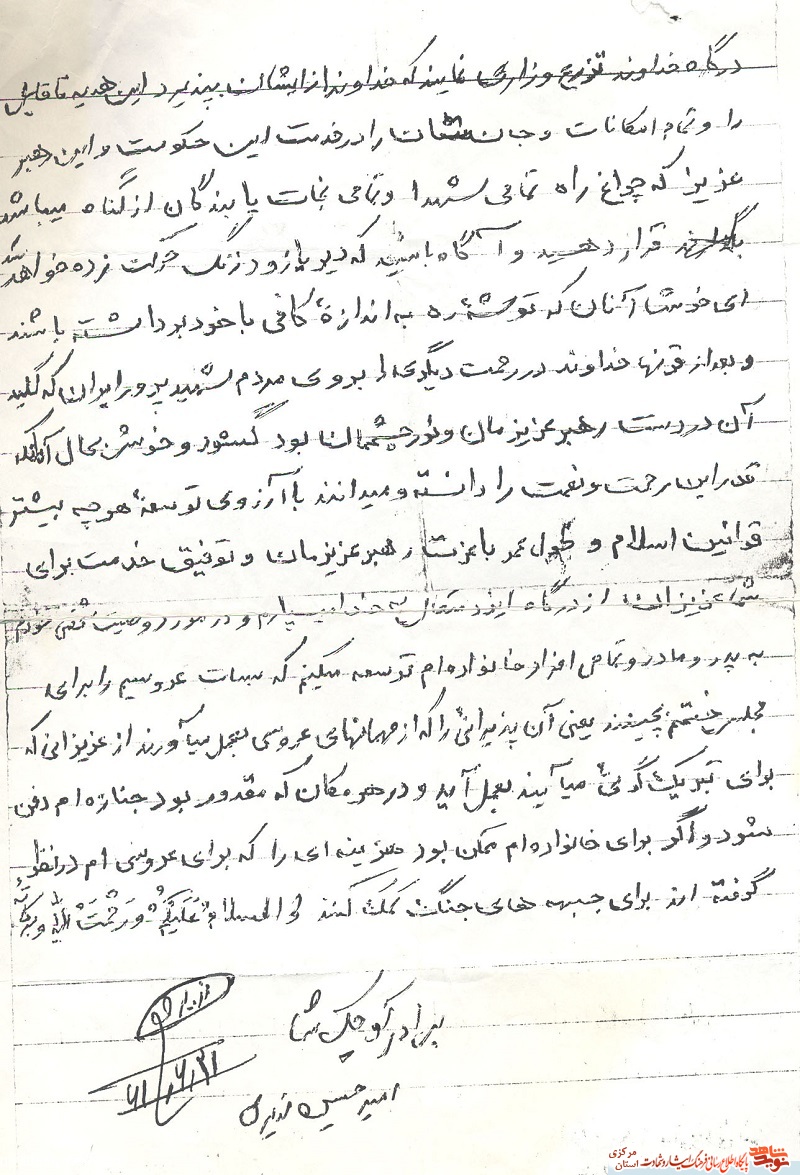 درگاه خداوند تزرع و زاری نمایند که خداوند از ایشان بپذیرد این هدیه ناقابل
را و تمام امکانات و جان شان را در خدمت این حکومت و این رهبر
عزیز که چراغ راه تمامی شهدا و تمامی نجات یابندگان از گناه میباشد
قرار دهید و آگاه باشید که دیر یا زود زنگ حرکت زده خواهد شد
ای خوشا آنان که توشهٔ ره به اندازهٔ کافی با خود برداشته باشند
و بعد از قرنها خداوند در رحمت دیگری را بروی مردم شهید پرور ایران که کلید
آن در دست رهبر عزیزمان و نور چشممان بود گشود و خوش بحال آنانکه
قدر این رحمت و نعمت را دانسته و میدانند با آرزوی توسعهٔ هر چه بیشتر
قوانین اسلام و طول عمر با عزت رهبر عزیزمان و توفیق خدمت برای
شما عزیزان از درگاه ایزد متعال به خدا میسپارم و در مورد وصیت شخصی خودم
به پدر و مادر و تمامی افراد خانواده ام توسعه میکنم که بسات عروسیم را برای
مجلس ختمم بچینند یعنی آن پذیرائی را که از مهمانهای عروسی بعمل میآورند از عزیزانی که
برای تبریک گوئی میآیند بعمل آید و در هر مکان که مقدور بود جنازه ام دفن
شود و اگر برای خانواده ام ممکن بود هزینه ای را که برای عروسی ام در نظر
گرفته اند برای جبهه های جنگ کمک کنند والسلام عَلَیکُم وَ رَحْمَتُ اللهِ وَ بَرَکاتُه
برادر کوچک شما
امیر حسین نذیری
۶۱/۶/۲۱
نوید شاهد
پایگاه اطلاع رسانی فرهنگ ایثار و شهادت استان مرکزی